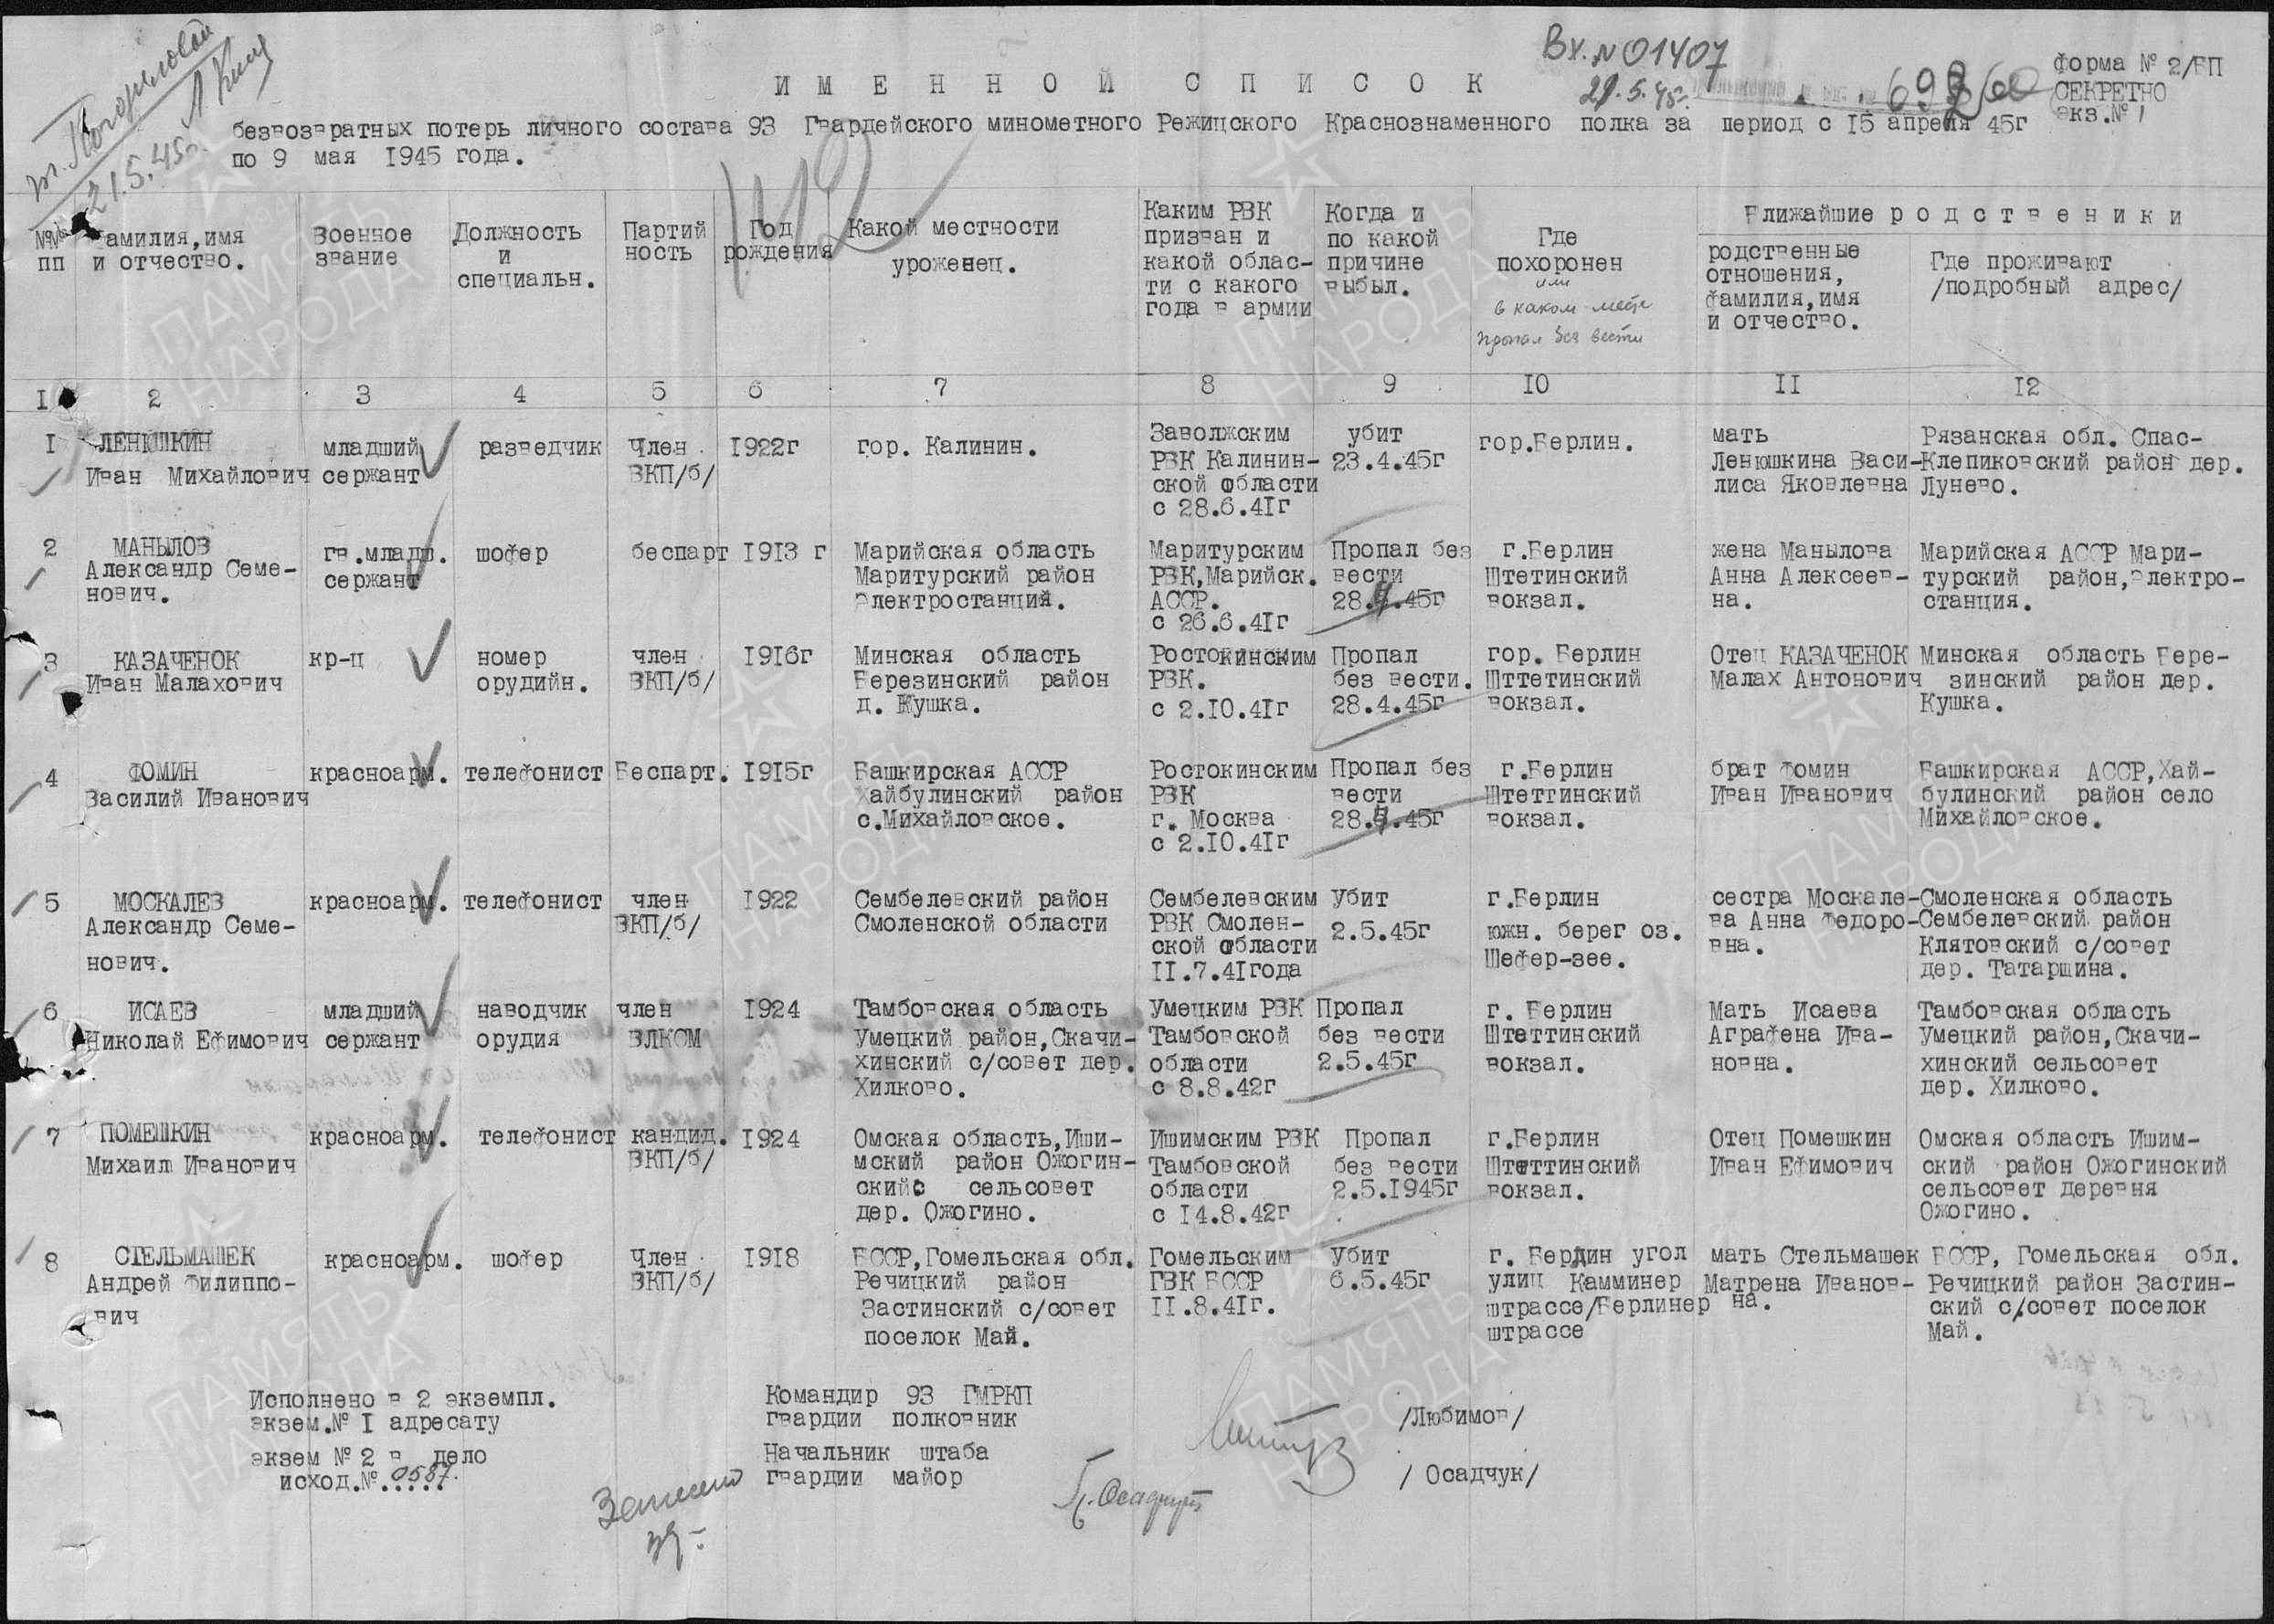 т. Погориловой
21.5.45г.
Вх. № 01407
21.5.45г.
форма № 2/БП
СЕКРЕТНО
экз.№ 1
ИМЕННОЙ СПИСОК
безвозвратных потерь личного состава 93 Гвардейского минометного Режицского Краснознаменного полка за период с 15 апреля 45г
по 9 мая 1945 года.
№№ пп
фамилия,имя и отчество.
Военное звание
Должность и специальн.
Партий ность
Год рождения
Какой местности уроженец.
Каким РВК призван и какой облас- ти с какого года в армии
Когда и по какой причине выбыл.
Где похоронен или в каком месте пропал без вести
Ближайшие родственики
родственные отношения, фамилия,имя и отчество.
Где проживают /подробный адрес/
1 2 3 4 5 6 7 8 9 10 11 12
1 ЛЕНЮШКИН младший разведчик Член 1922г гор. Калинин. Заволжским убит гор.Берлин. мать Рязанская обл. Спас-
Иван Михайлович сержант ВКП/б/ РВК Калинин- 23.4.45г Ленюшкина Васи- Клепиковский район дер.
ской области лиса Яковлевна Лунево.
с 28.6.41г
2 МАНЫЛОВ гв.младш. шофер беспарт 1913 г Марийская область Маритурским Пропал без г.Берлин жена Манылова Марийская АССР Мари-
Александр Семе- сержант Маритурский район РВК,Марийск. вести Штетинский Анна Алексеев- турский район,электро-
нович. электростанция. АССР. 28.4.45г вокзал. на. станция.
с 26.6.41г
3 КАЗАЧЕНОК кр-ц номер член 1916г Минская область Ростокинским Пропал гор. Берлин Отец КАЗАЧЕНОК Минская область Бере-
Иван Малахович орудийн. ВКП/б/ Березинский район РВК. без вести. Шттетинский Малах Антонович зинский район дер.
д. Кушка. с 2.10.41г 28.4.45г вокзал. Кушка.
4 ФОМИН красноарм. телефонист Беспарт. 1915г Башкирская АССР Ростокинским Пропал без г.Берлин брат Фомин Башкирская АССР,Хай-
Василий Иванович Хайбулинский район РВК вести Штеттинский Иван Иванович булинский район село
с.Михайловское. г. Москва 28.4.45г вокзал. Михайловское.
с 2.10.41г
5 МОСКАЛЕВ красноарм. телефонист член 1922 Сембелевский район Сембелевским Убит г.Берлин сестра Москале- Смоленская область
Александр Семе- ВКП/б/ Смоленской области РВК Смолен- 2.5.45г южн. берег оз. ва Анна Федоро- Сембелевский район
нович. ской области Шефер-зее. вна. Клятовский с/совет
11.7.41года дер. Татаршина.
6 ИСАЕВ младший наводчик член 1924 Тамбовская область Умецким РВК Пропал г. Берлин Мать Исаева Тамбовская область
Николай Ефимович сержант орудия ВЛКСМ Умецкий район,Скачи- Тамбовской без вести Штеттинский Аграфена Ива- Умецкий район,Скачи-
хинский с/совет дер. области 2.5.45г вокзал. новна. хинский сельсовет
Хилково. с 8.8.42г дер. Хилково.
7 ПОМЕШКИН красноарм. телефонист кандид. 1924 Омская область,Иши- Ишимским РВК Пропал г.Берлин Отец Помешкин Омская область Ишим-
Михаил Иванович ВКП/б/ мский район Ожогин- Тамбовской без вести Штеттинский Иван Ефимович ский район Ожогинский
ский сельсовет области 2.5.1945г вокзал. сельсовет деревня
дер. Ожогино. с 14.8.42г Ожогино.
8 СТЕЛЬМАШЕК красноарм. шофер Член 1918 БССР,Гомельская обл. Гомельским Убит г. Берлин угол мать Стельмашек БССР, Гомельская обл.
Андрей Филиппо- ВКП/б/ Речицкий район ГВК БССР 6.5.45г улиц Камминер Матрена Иванов- Речицкий район Застин-
вич Застинский с/совет 11.8.41г. штрассе/Берлинер на. ский с/совет поселок
поселок Май. штрассе Май.
Исполнено в 2 экземпл.
экзем.№ 1 адресату
экзем № 2 в дело
исход.№ 0587
Командир 93 ГМРКП
гвардии полковник /Любимов/
Начальник штаба
гвардии майор Г. Осадчук / Осадчук/
Занесено
ПАМЯТЬ НАРОДА
ПАМЯТЬ НАРОДА
ПАМЯТЬ НАРОДА
ПАМЯТЬ НАРОДА
ПАМЯТЬ НАРОДА
ПАМЯТЬ НАРОДА